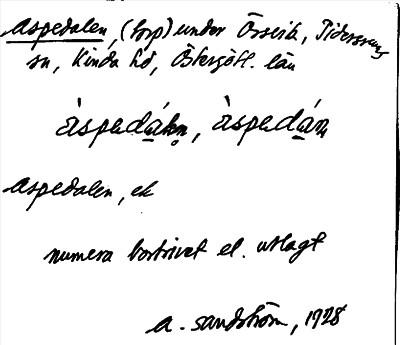 Aspedalen, (torp) under Össvik, Tidersrums
sn, Kinda hd, Östergötl. län
àspedáln, àspedán
Aspedalen, ek
numera bortrivet el. utlagt
A. Sandström, 1928